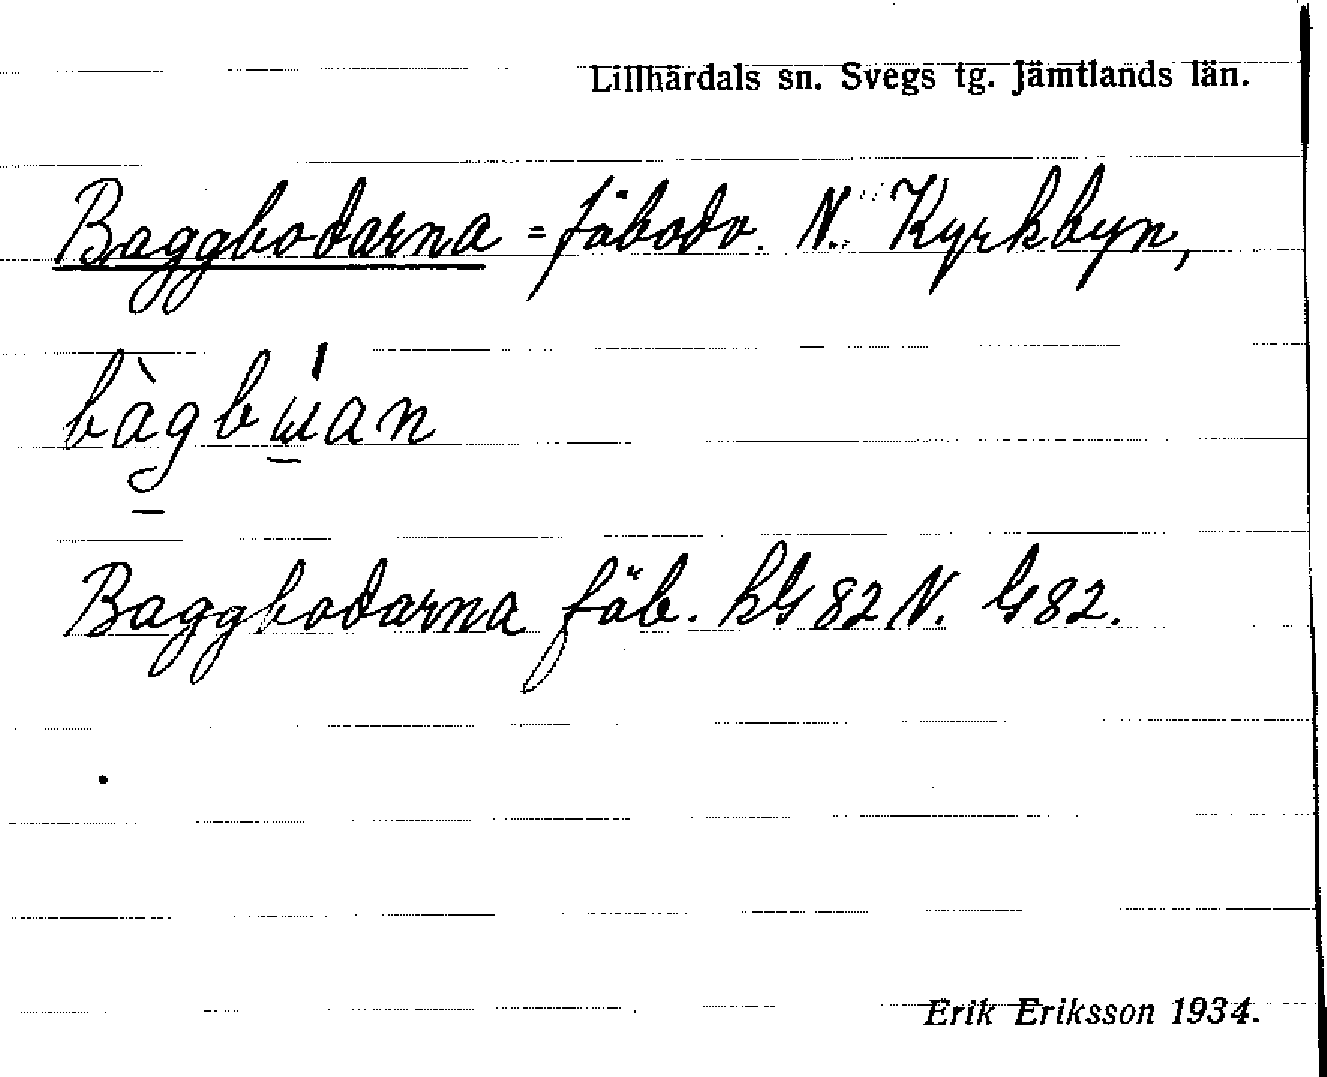 Lillhärdals sn. Svegs tg. Jämtlands län.
Baggbodarna = fäbodv. N. Kyrkbyn,
Baggbodarna fäb. kG 82 N. G 82.
Erik Eriksson 1934.